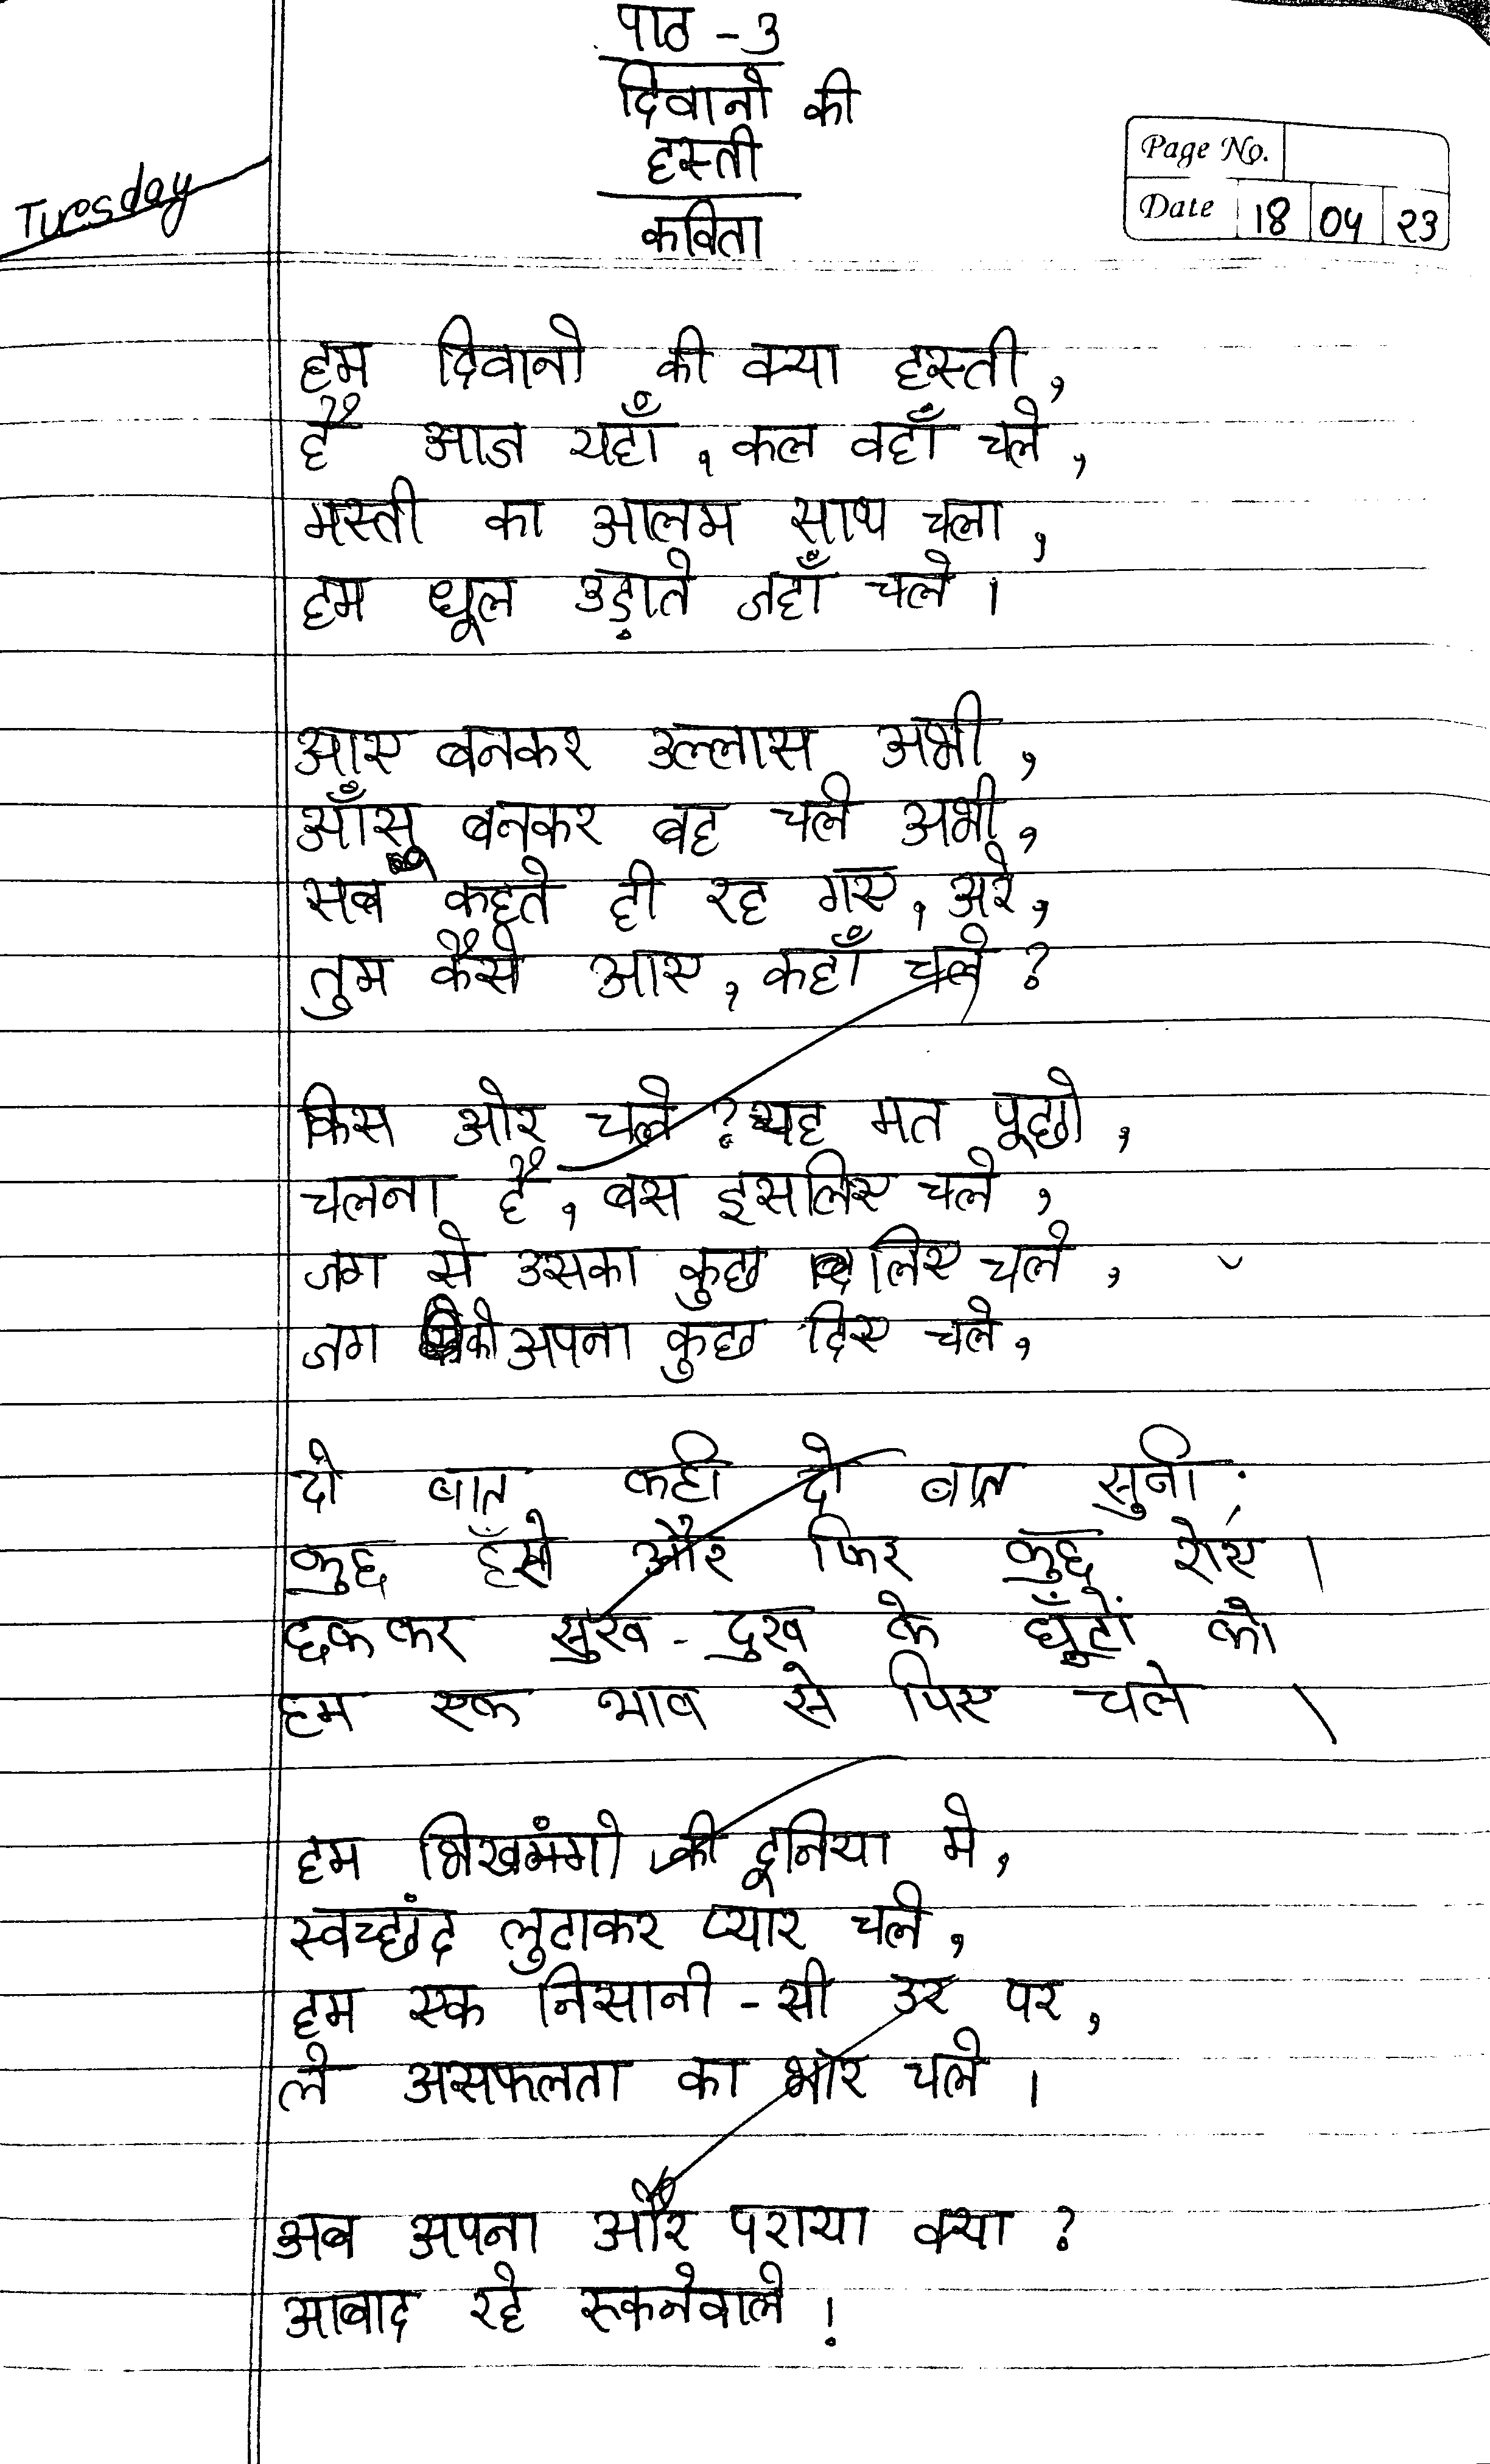 पाठ - 3
दिवानो की
हस्ती
कविता
Page No.
Date 18 04 23
Tuesday
हम दिवानो की क्या हस्ती,
हैं आज यहाँ, कल वहाँ चले,
मस्ती का आलम साथ चला,
हम धूल उड़ाते जहाँ चले।
आए बनकर उल्लास अभी,
आँसू बनकर बह चले अभी,
सब कहते ही रह गए, अरे,
तुम कैसे आए, कहाँ चले?
किस ओर चले? यह मत पूछो,
चलना है, बस इसलिए चले,
जग से उसका कुछ लिए चले,
जग को अपना कुछ दिए चले,
दो बात कही दो बात सुनी;
कुछ हँसे और फिर कुछ रोए।
छककर सुख - दुख के घूँटों को
हम एक भाव से पिए चले।
हम भिखमंगो की दूनिया मे,
स्वच्छंद लुटाकर प्यार चले,
हम एक निसानी - सी उर पर,
ले असफलता का भार चले।
अब अपना और पराया क्या?
आबाद रहे रुकनेवाले!